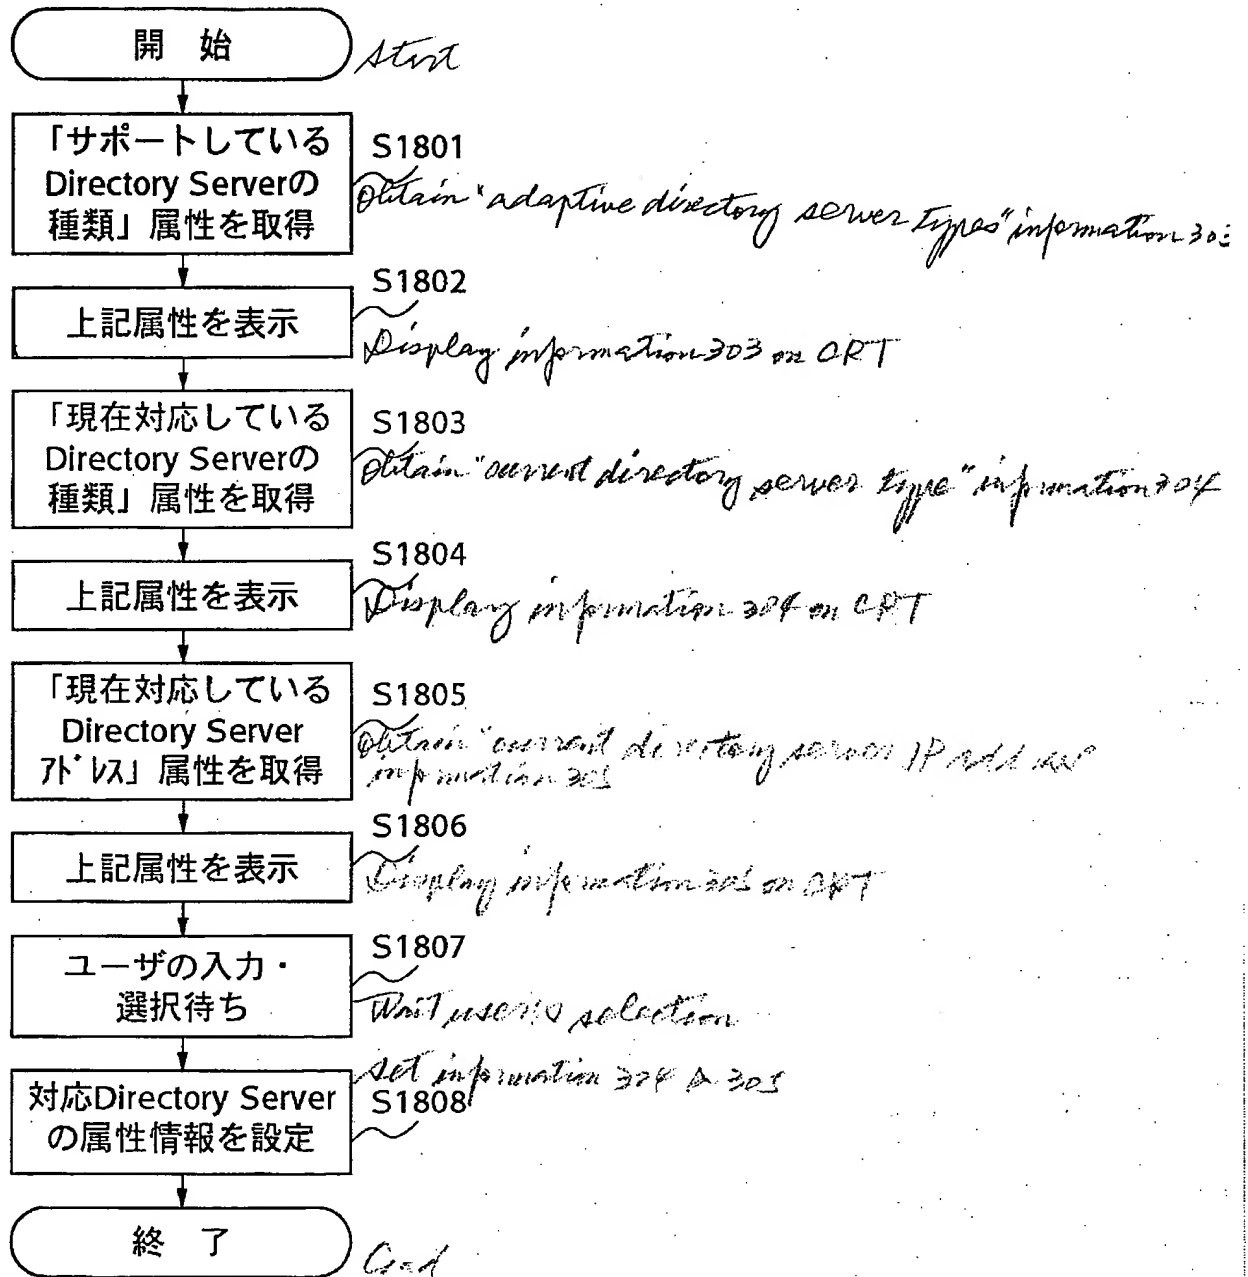 開 始
Start
「サポートしている
Directory Serverの
種類」属性を取得
S1801
Obtain "adaptive directory server types" information 303
上記属性を表示
S1802
Display information 303 on CRT
「現在対応している
Directory Serverの
種類」属性を取得
S1803
Obtain "current directory server type" information 304
上記属性を表示
S1804
Display information 304 on CRT
「現在対応している
Directory Server
ｱﾄﾞﾚｽ」属性を取得
S1805
Obtain "current directory server IP address
information 305
上記属性を表示
S1806
Display information 305 on CRT
ユーザの入力・
選択待ち
S1807
Wait user's selection
Set information 304 & 305
対応Directory Server
の属性情報を設定
S1808
終 了
End